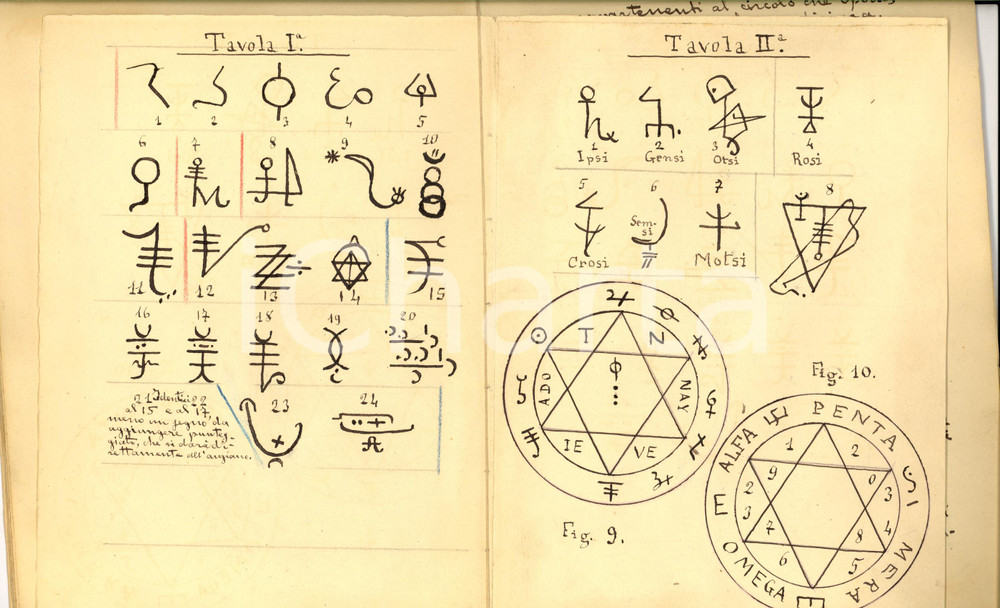 appartenenti al circolo che
Tavola Iª.
1 2 3 4 5
6 7 8 9 10
11 12 13 14 15
16 17 18 19 20
21 Identico 22
al 15 e al 17
meno un segno da
aggiungere punteg-
giato, che si darà di-
rettamente all'anziano.
23 24
Tavola IIª.
1 2 3 4
Ipsi Gensi Otsi Rosi
5 6 7 8
Semsi
Crosi Motsi
T N
ADO NAY
IE VE
Fig. 9.
Fig. 10.
ALFA PENTA
E OMEGA MERA
1 2
9 0
2 3
3 4
7 8
6 5
iCharta